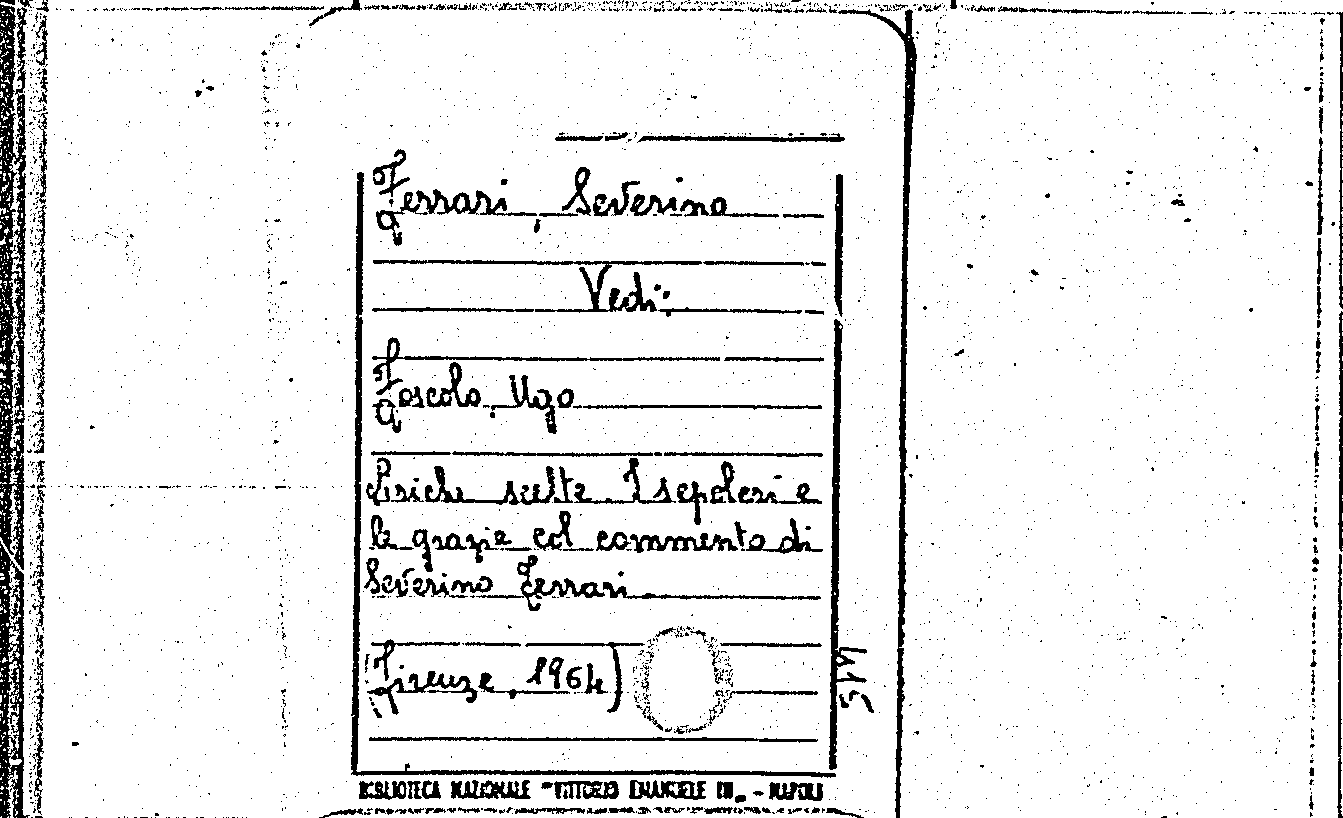 Ferrari, Severino
Vedi:
Foscolo, Ugo
Liriche scelte. I sepolcri e
le grazie col commento di
Severino Ferrari.
(Firenze, 1964)
BIBLIOTECA NAZIONALE "VITTORIO EMANUELE III" - NAPOLI